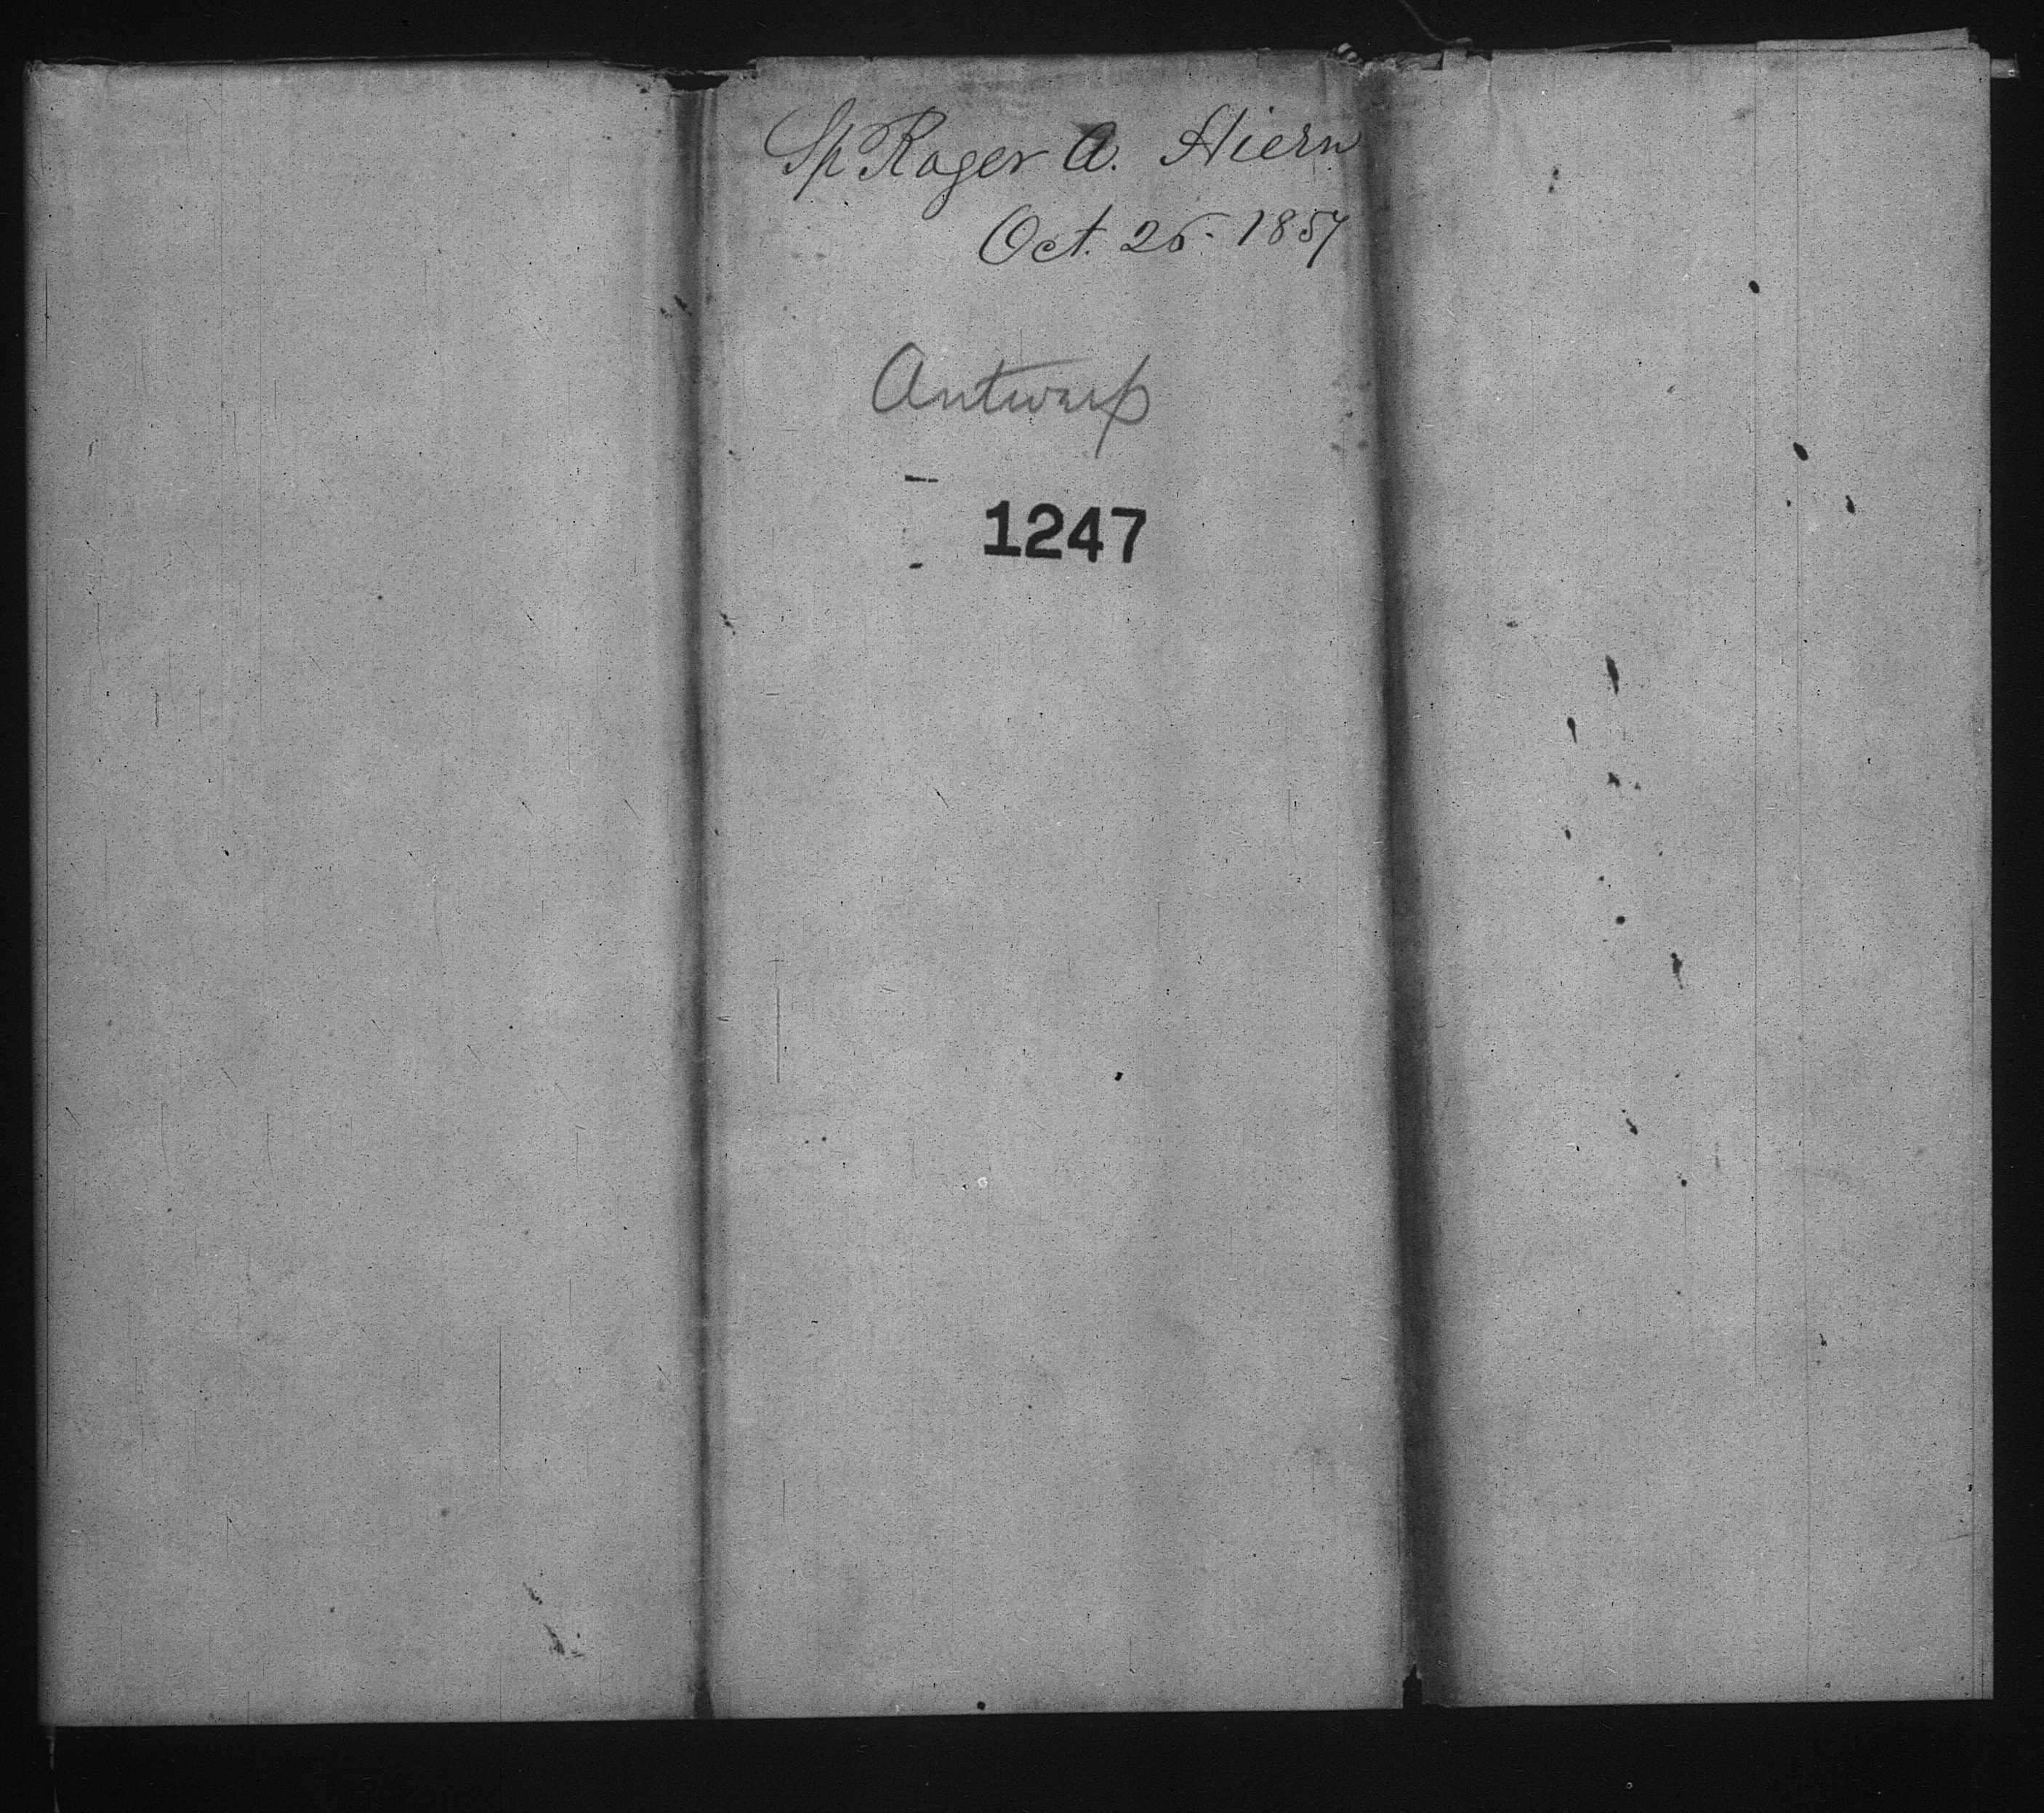 Sp Roger A. Hiern
Oct. 26. 1857
Antwerp
1247